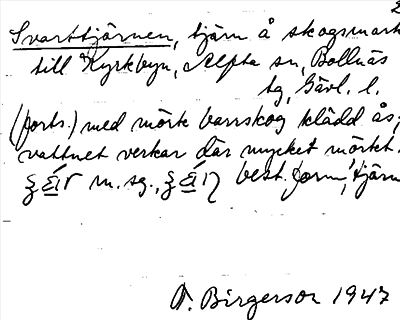 2
Svarttjärnen, tjärn å skogsmark
till Kyrkbyn, Alfta sn, Bollnäs
tg, Gävl. l.
(forts.) med mörk barrskog klädd ås;
vattnet verkar där mycket mörkt.
m. sg., best. form, tjärn
A. Birgerson 1947